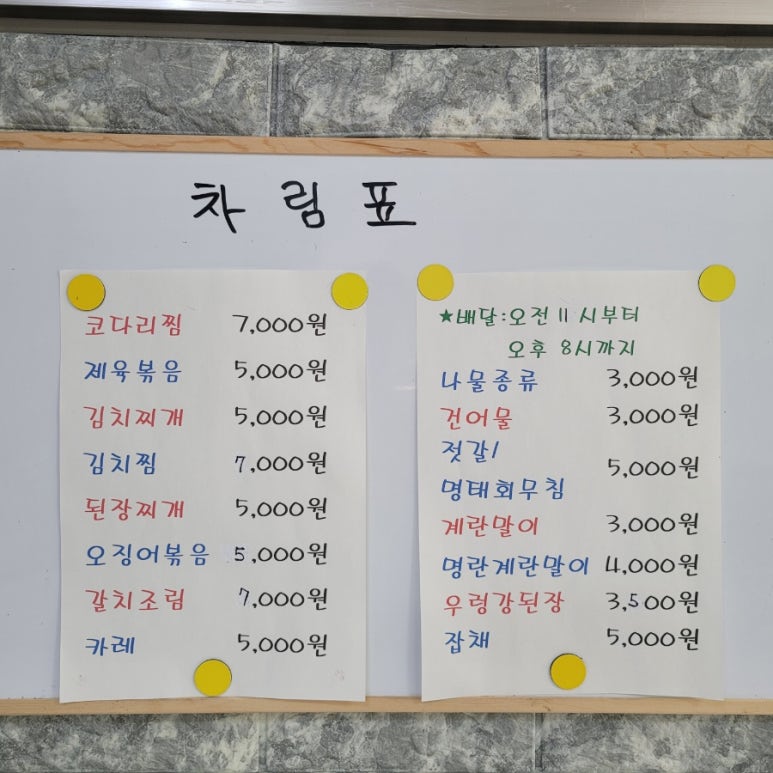 차림표
코다리찜 7,000원
제육볶음 5,000원
김치찌개 5,000원
김치찜 7,000원
된장찌개 5,000원
오징어볶음 5,000원
갈치조림 7,000원
카레 5,000원
★배달:오전 11시부터
오후 8시까지
나물종류 3,000원
건어물 3,000원
젓갈/
명태회무침 5,000원
계란말이 3,000원
명란계란말이 4,000원
우렁강된장 3,500원
잡채 5,000원